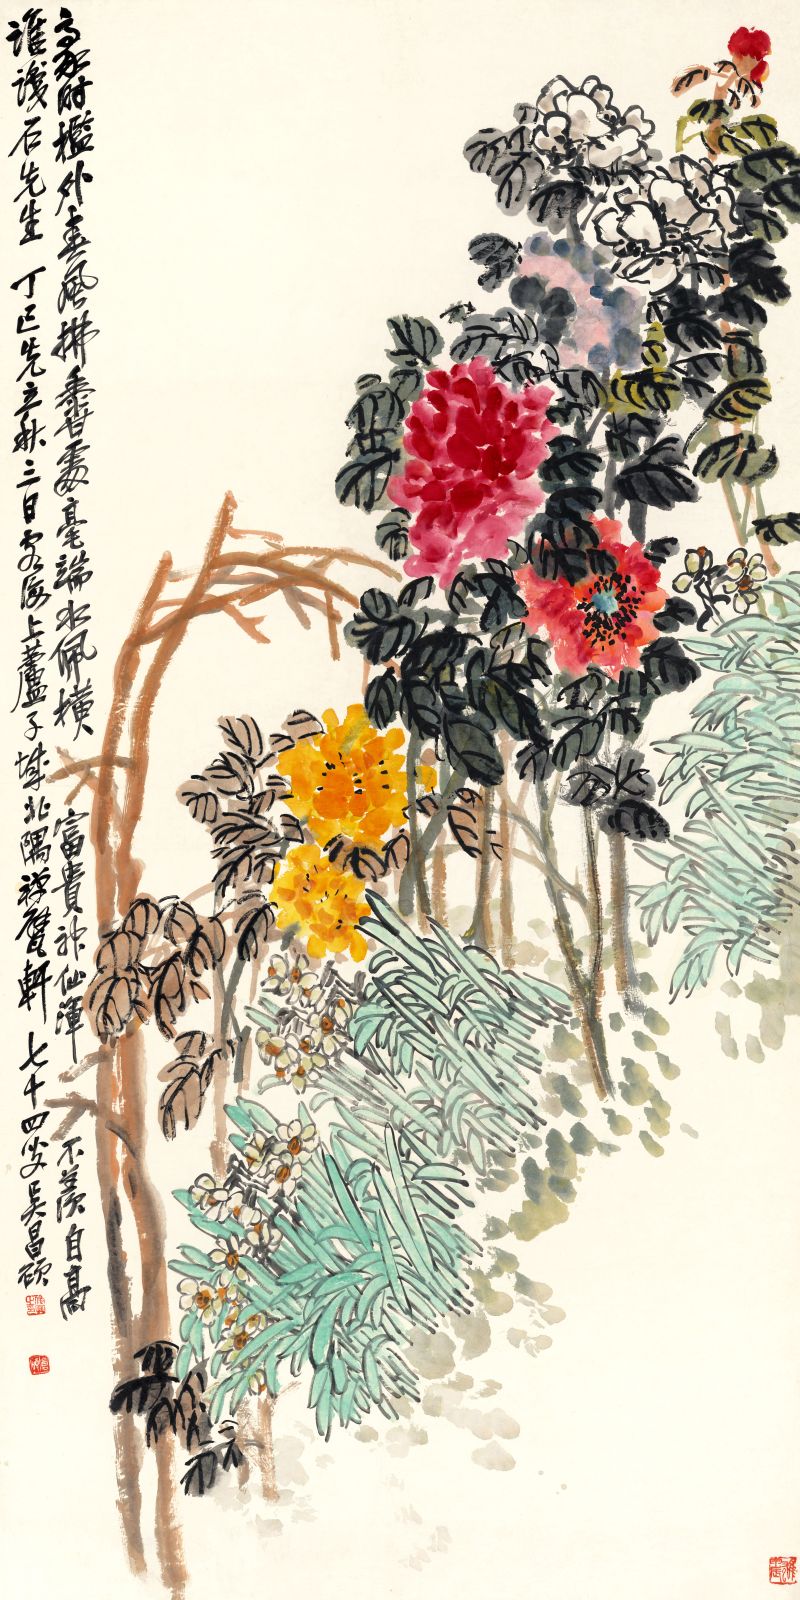 時檻外春風拂香處毫端水佩橫富貴神仙渾不羨自高
石先生丁巳先立秋三日客海上蘆子城北隅禪甓軒七十四叟吳昌碩